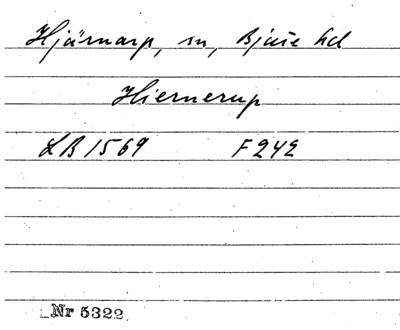 Hjärnarp, sn, Bjäre hd
Hiernerup
LB 1569 F 242
Nr 5322